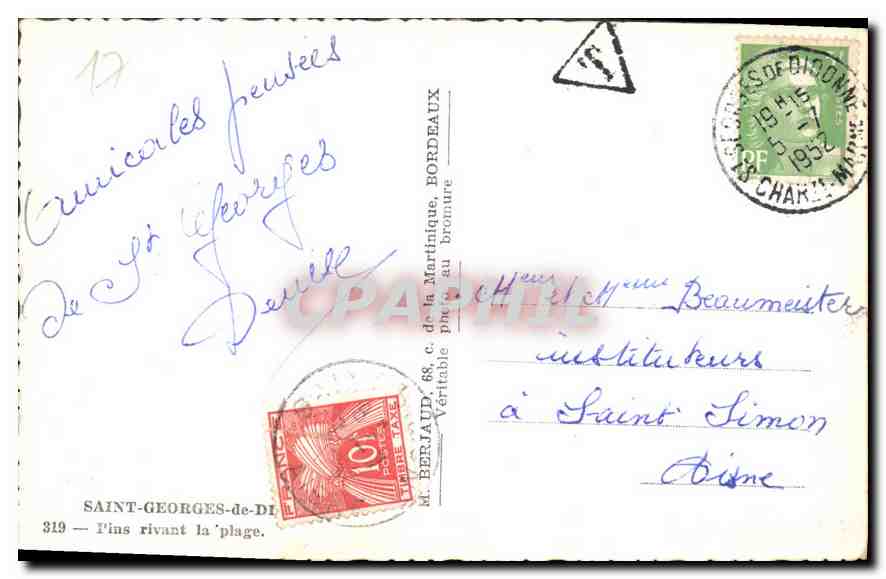 17
Amicales pensées
de St Georges
Denise
SAINT-GEORGES-de-DI
319 — Pins rivant la plage.
M. BERJAUD, 68, c. de la Martinique, BORDEAUX
Véritable photo au bromure
T
ST GEORGES DE DIDONNE
19 H 15
5 - 7
1952
CHARTE-MARME
FRANCE
10F
POSTES
TIMBRE TAXE
CPAPHIL
Mr et Mme Beaumeister
instituteurs
à Saint Simon
Aisne